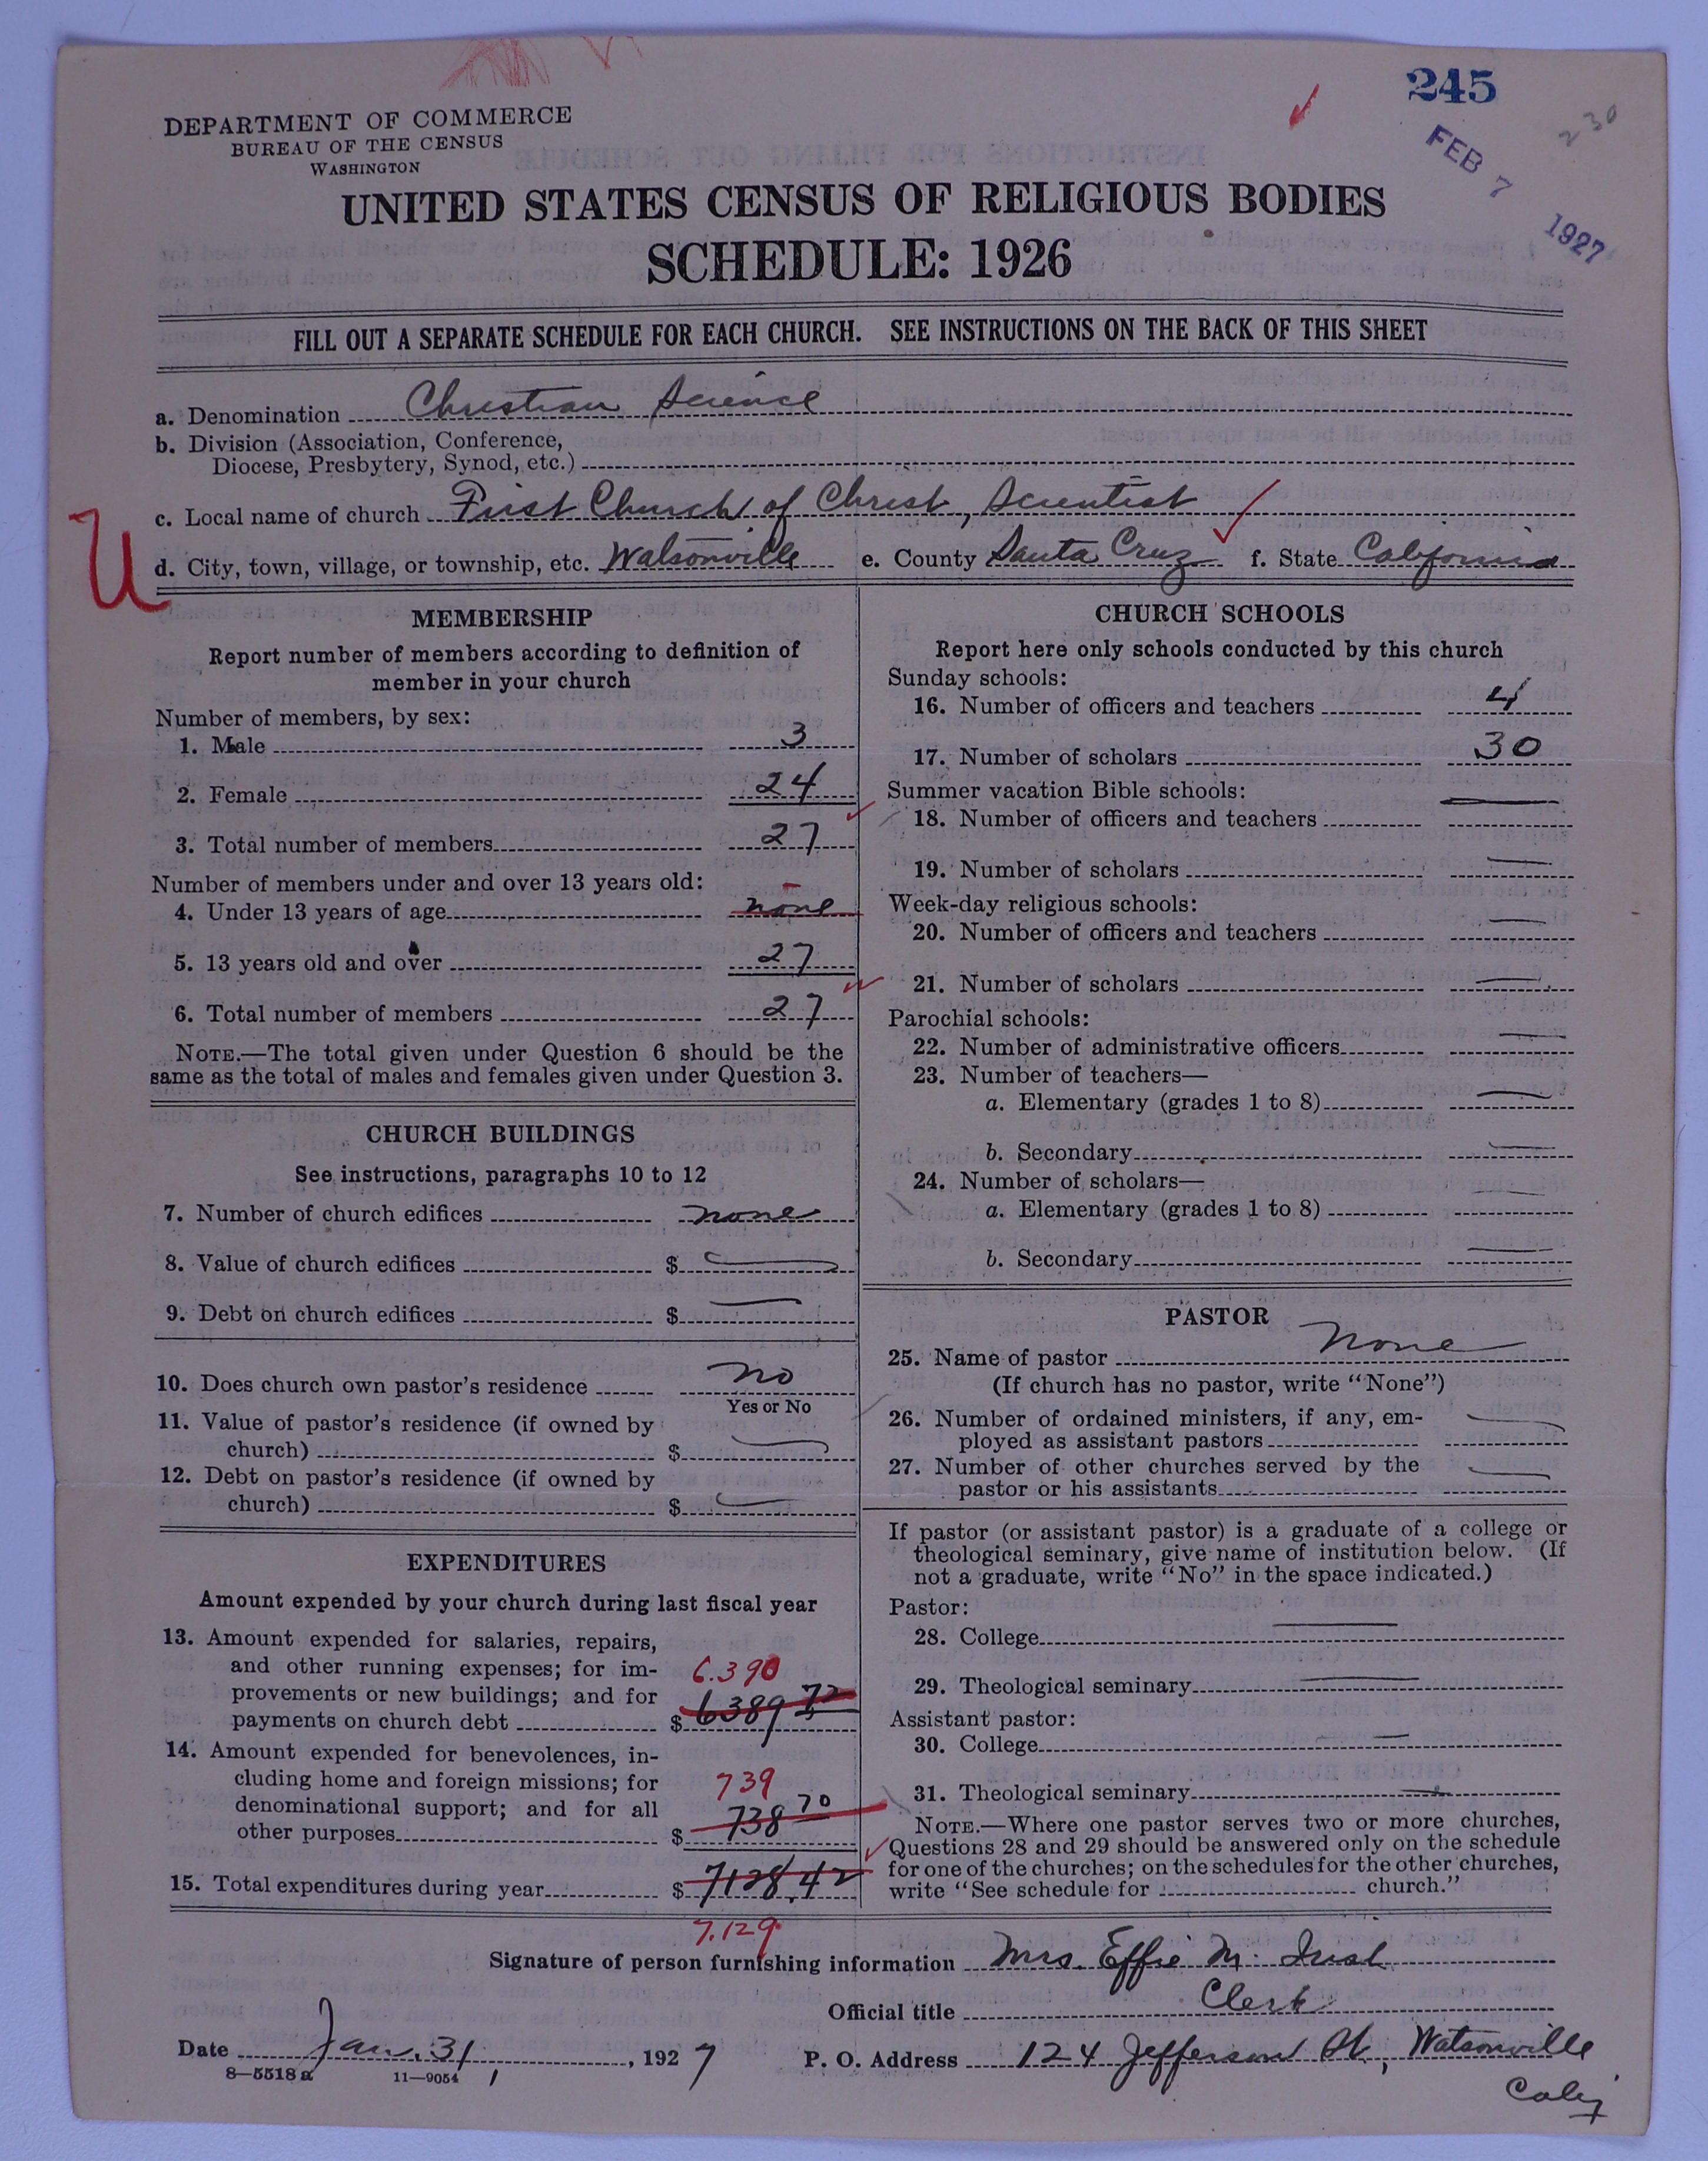 245
230
FEB 7 1927
DEPARTMENT OF COMMERCE
BUREAU OF THE CENSUS
WASHINGTON
UNITED STATES CENSUS OF RELIGIOUS BODIES
SCHEDULE: 1926
FILL OUT A SEPARATE SCHEDULE FOR EACH CHURCH. SEE INSTRUCTIONS ON THE BACK OF THIS SHEET
a. Denomination Christian Science
b. Division (Association, Conference,
Diocese, Presbytery, Synod, etc.)
c. Local name of church First Church of Christ, Scientist
U
d. City, town, village, or township, etc. Watsonville e. County Santa Cruz f. State California
MEMBERSHIP
Report number of members according to definition of
member in your church
Number of members, by sex:
1. Male 3
2. Female 24
3. Total number of members 27
Number of members under and over 13 years old:
4. Under 13 years of age none
5. 13 years old and over 27
6. Total number of members 27
NOTE.—The total given under Question 6 should be the
same as the total of males and females given under Question 3.
CHURCH BUILDINGS
See instructions, paragraphs 10 to 12
7. Number of church edifices none
8. Value of church edifices $
9. Debt on church edifices $
10. Does church own pastor's residence no
Yes or No
11. Value of pastor's residence (if owned by
church) $
12. Debt on pastor's residence (if owned by
church) $
EXPENDITURES
Amount expended by your church during last fiscal year
13. Amount expended for salaries, repairs,
and other running expenses; for im- 6.390
provements or new buildings; and for
payments on church debt $ 6389 72
14. Amount expended for benevolences, in-
cluding home and foreign missions; for 739
denominational support; and for all
other purposes $ 738 70
15. Total expenditures during year $ 7128.42
7.129
CHURCH SCHOOLS
Report here only schools conducted by this church
Sunday schools:
16. Number of officers and teachers 4
17. Number of scholars 30
Summer vacation Bible schools:
18. Number of officers and teachers
19. Number of scholars
Week-day religious schools:
20. Number of officers and teachers
21. Number of scholars
Parochial schools:
22. Number of administrative officers
23. Number of teachers—
a. Elementary (grades 1 to 8)
b. Secondary
24. Number of scholars—
a. Elementary (grades 1 to 8)
b. Secondary
PASTOR
25. Name of pastor None
(If church has no pastor, write "None")
26. Number of ordained ministers, if any, em-
ployed as assistant pastors
27. Number of other churches served by the
pastor or his assistants
If pastor (or assistant pastor) is a graduate of a college or
theological seminary, give name of institution below. (If
not a graduate, write "No" in the space indicated.)
Pastor:
28. College
29. Theological seminary
Assistant pastor:
30. College
31. Theological seminary
NOTE.—Where one pastor serves two or more churches,
Questions 28 and 29 should be answered only on the schedule
for one of the churches; on the schedules for the other churches,
write "See schedule for church."
Signature of person furnishing information Mrs. Effie M. Irish
Official title Clerk
Date Jan. 31, 1927 P. O. Address 124 Jefferson St., Watsonville
8—5518a 11—9054 Calif